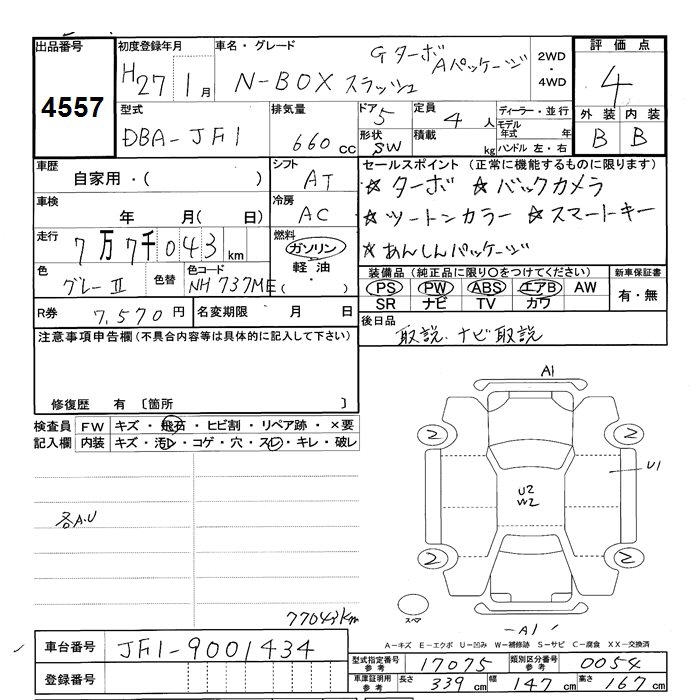 出品番号
4557
初度登録年月
H27 1月
車名・グレード
Gターボ
N-BOX スラッシュ Aパッケージ
2WD
・
4WD
評価点
4
外装 内装
B B
型式
DBA-JF1
排気量
660cc
ドア 5
形状 SW
定員 4人
積載 kg
ディーラー・並行
モデル年式 年
ハンドル 左・右
車歴
自家用・( )
車検
年 月( 日)
走行
7万7千043km
色
グレーII
色替
色コード
NH737ME( )
シフト
AT
冷房
AC
燃料
ガソリン
軽油
・
セールスポイント (正常に機能するものに限ります)
☆ターボ ☆バックカメラ
☆ツートンカラー ☆スマートキー
☆あんしんパッケージ
装備品(純正品に限り○をつけてください)
PS PW ABS エアB AW
SR ナビ TV カワ
新車保証書
有・無
R券 7,570円
名変期限 月 日
後日品
取説、ナビ取説
注意事項申告欄(不具合内容等は具体的に記入して下さい)
修復歴 有 〔箇所 〕
検査員記入欄
FW キズ・飛石・ヒビ割・リペア跡・×要
内装 キズ・汚レ・コゲ・穴・スレ・キレ・破レ
各A.U
77043km
A1
2 2
U1
U2
W2
2 2
スペア
A1
A-キズ E-エクボ U-凹み W-補修跡 S-サビ C-腐食 XX-交換済
車台番号 JF1-9001434
登録番号
型式指定番号 参考 17075
類別区分番号 参考 0054
車庫証明用 参考 長さ 339cm 幅 147cm 高さ 167cm